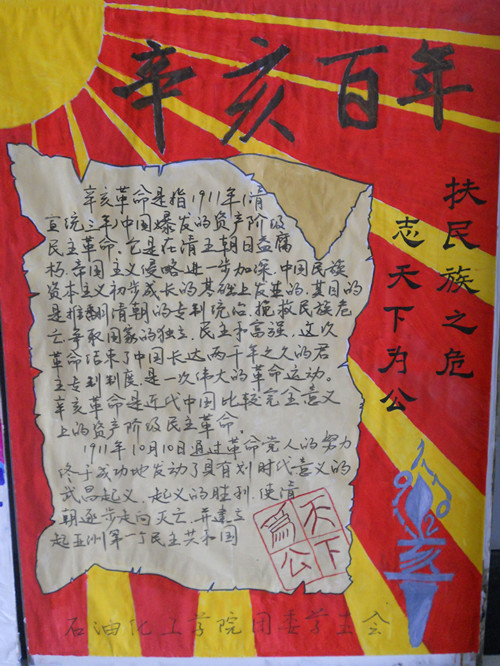 辛亥百年
扶民族之危
志天下为公
辛亥革命是指1911年(清
宣统三年)中国爆发的资产阶级
民主革命,它是在清王朝日益腐
朽、帝国主义侵略进一步加深、中国民族
资本主义初步成长的基础上发生的。其目的
是推翻清朝的专制统治,挽救民族危
亡,争取国家的独立、民主和富强。这次
革命结束了中国长达两千年之久的君
主专制制度,是一次伟大的革命运动。
辛亥革命是近代中国比较完全意义
上的资产阶级民主革命。
1911年10月10日通过革命党人的努力
终于成功地发动了具有划时代意义的
武昌起义,起义的胜利,使清
朝逐步走向灭亡,并建立
起亚洲第一个民主共和国
天下
為公
石油化工学院团委学生会